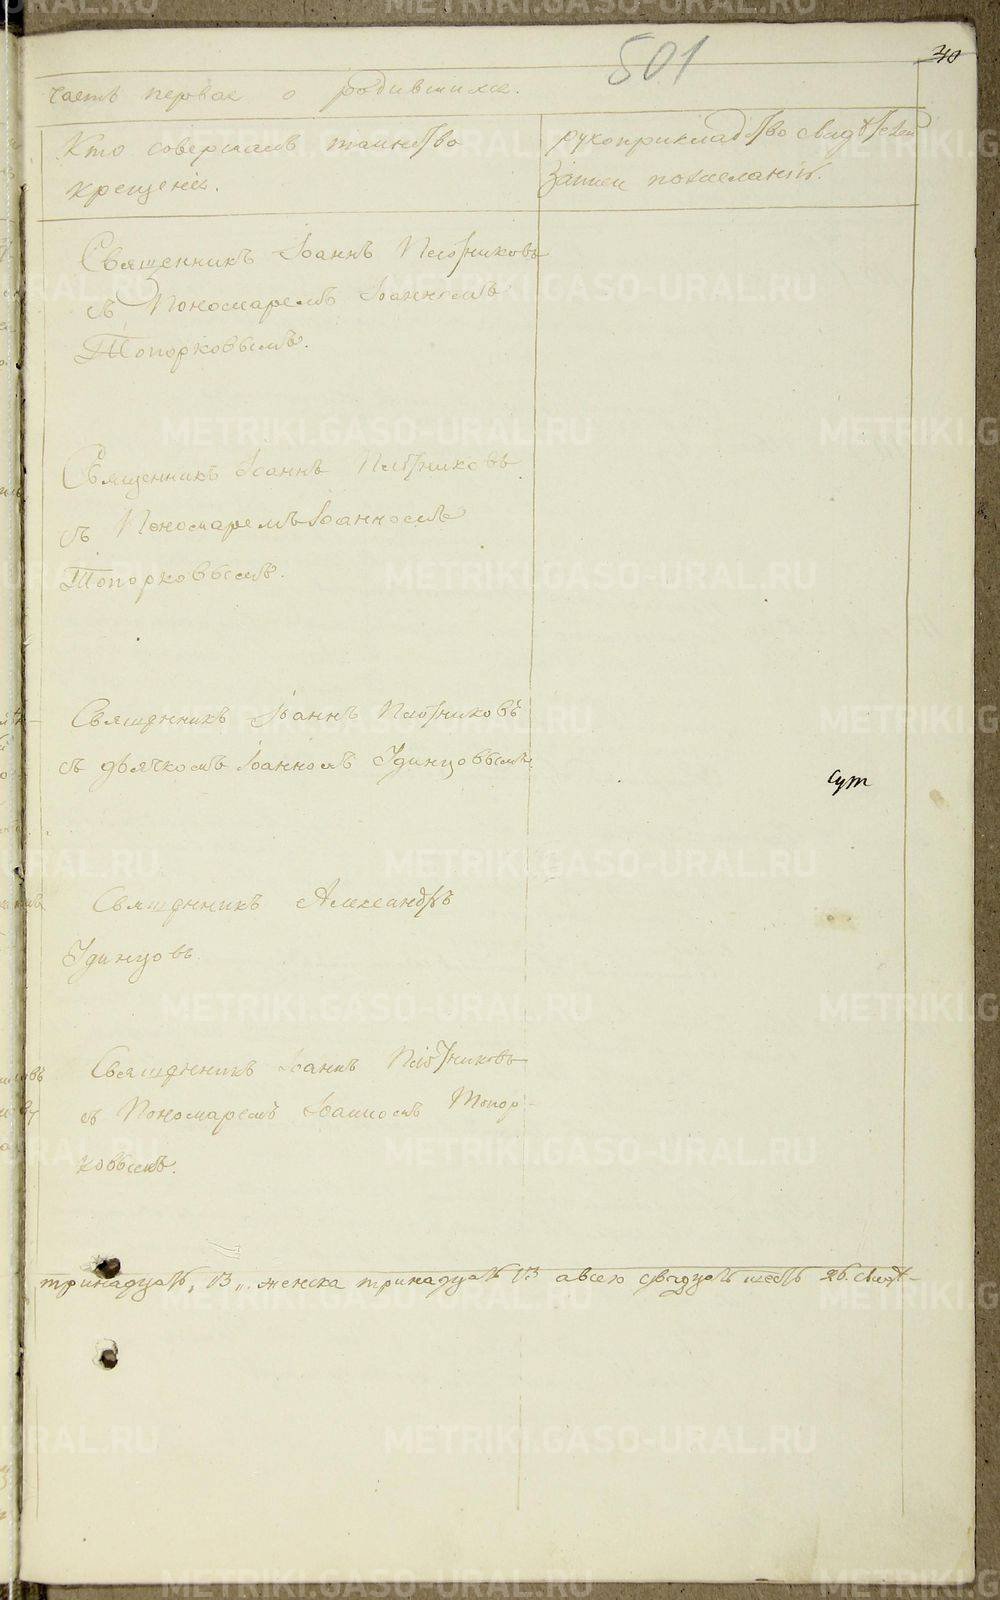 501
40
часть первая о родившихся.
Кто совершалъ таинство
крещенія.
рукоприкладство свидѣтелей
записи пожеланію.
Священникъ Іоаннъ Плотниковъ
съ Пономаремъ Іоанномъ
Топорковымъ.
Священникъ Іоаннъ Плотниковъ
съ Пономаремъ Іоанномъ
Топорковымъ.
Священникъ Іоаннъ Плотниковъ
съ дьячкомъ Іоанномъ Удинцовымъ
сут
Священникъ Александръ
Удинцовъ.
Священникъ Іоаннъ Плотниковъ
съ Пономаремъ Іоанномъ Топор-
ковымъ.
тринадцать „13„ женска тринадцать 13 авсего двадцать шесть 26.
METRIKI.GASO-URAL.RU